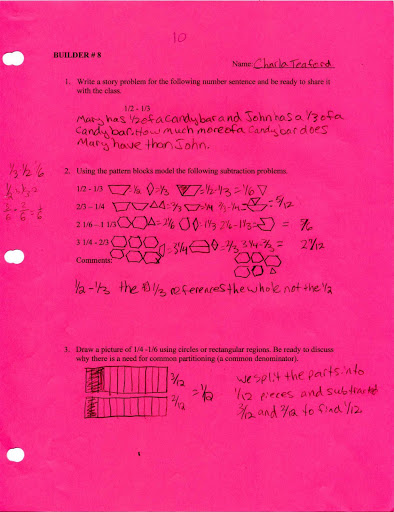 10
BUILDER # 8
Name: Charla Teaford
1. Write a story problem for the following number sentence and be ready to share it
with the class.
1/2 - 1/3
Mary has 1/2 of a candy bar and John has a 1/3 of a
candy bar. How much more of a candy bar does
Mary have than John.
1/3 1/2 1/6
2. Using the pattern blocks model the following subtraction problems.
1/2 - 1/3 = 1/2 = 1/3 = 1/2 - 1/3 = 1/6
3/6 - 2/6 = 1/6
2/3 – 1/4 = 2/3 = 1/4 = 5/12
2 1/6 – 1 1/3 = 2 1/6 = 1 1/3 2 1/6 - 1 1/3 =
3 1/4 - 2/3 = 3 1/4 = 2/3 3 1/4 - 2/3 = 2 7/12
Comments:
1/2 - 1/3 the 1/3 references the whole not the 1/2
3. Draw a picture of 1/4 -1/6 using circles or rectangular regions. Be ready to discuss
why there is a need for common partitioning (a common denominator).
3/12
2/12
= 1/12
we split the parts into
1/12 pieces and subtracted
3/12 and 2/12 to find 1/12.